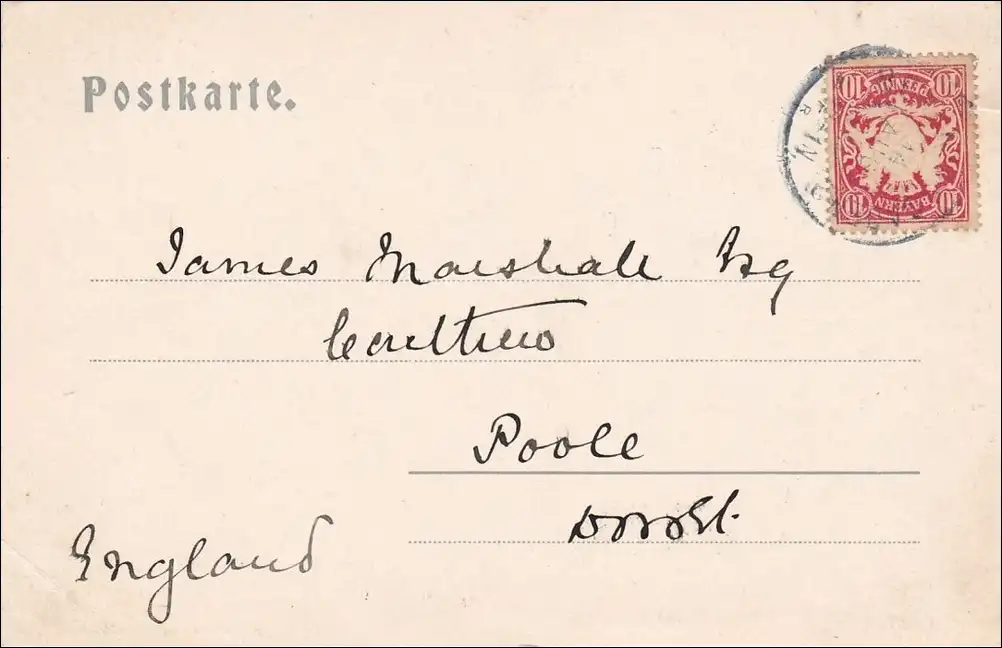 Postkarte.
10 10
PFENNIG
BAYERN
10 10
James Marshall Esq
Poole
Dorset.
England